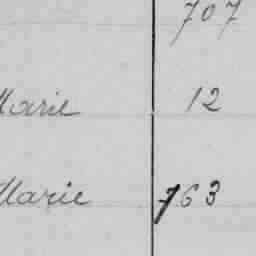 707
Marie 12
Marie 763